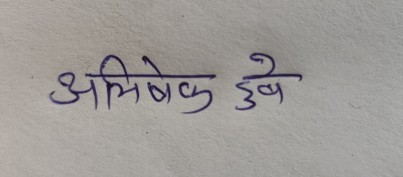 अभिषेक दुबे